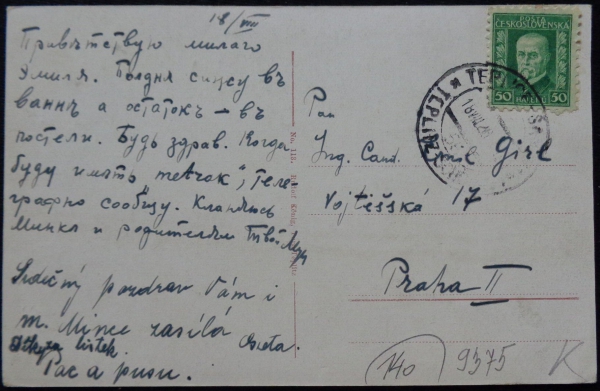 18/VIII
Привѣтствую милаго
Эмиля. Полдня сижу въ
ваннѣ а остатокъ – въ
постели. Будь здрав. Когда
буду имѣть теле
графно сообщу. Кланяюсь
Минкѣ и родителям Твой
Srdečný pozdrav Vám i
m. Mince zasílá
Děkuji za lístek.
Pac a pusu.
POŠTA
ČESKOSLOVENSKÁ
50 HALÉŘŮ 50
TEPLITZ
Pan
Ing. Cand. Emil Girl
Vojtěšská 17
Praha II
140
9375
K